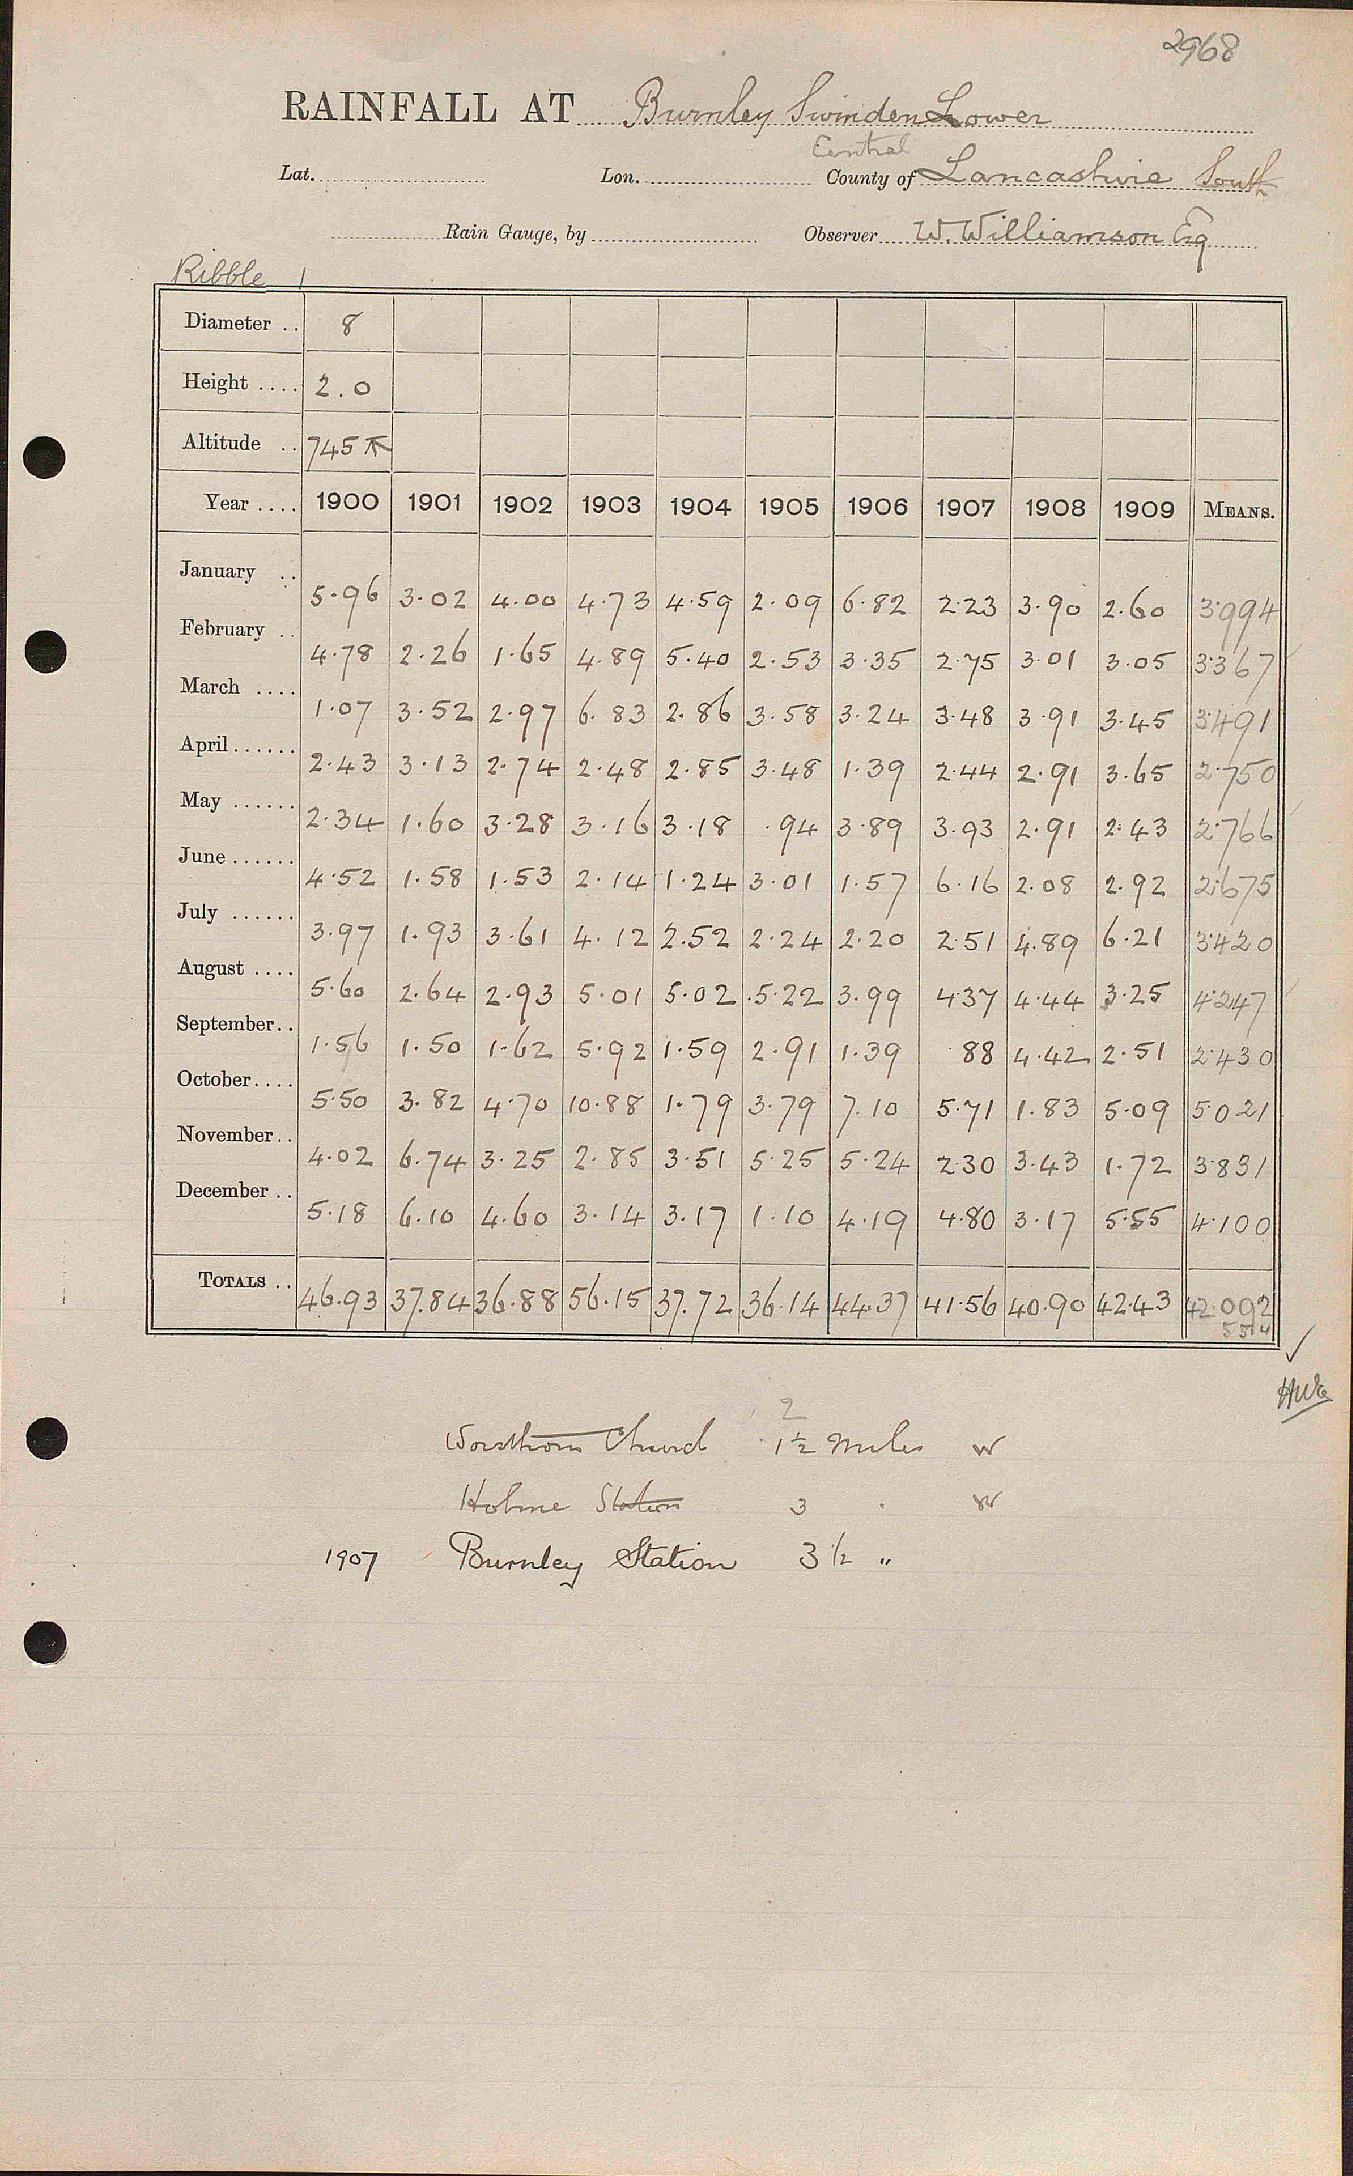 2968
RAINFALL AT Burnley Swinden Lower
Central
Lat. Lon. County of Lancashire South
Rain Gauge, by Observer W. Williamson Esq
Ribble 1
Diameter .. 8
Height .... 2.0
Altitude .. 745
Year .... 1900 1901 1902 1903 1904 1905 1906 1907 1908 1909 MEANS.
January .. 5.96 3.02 4.00 4.73 4.59 2.09 6.82 2.23 3.90 2.60 3.994
February .. 4.78 2.26 1.65 4.89 5.40 2.53 3.35 2.75 3.01 3.05 3.367
March .... 1.07 3.52 2.97 6.83 2.86 3.58 3.24 3.48 3.91 3.45 3.491
April ...... 2.43 3.13 2.74 2.48 2.85 3.48 1.39 2.44 2.91 3.65 2.750
May ...... 2.34 1.60 3.28 3.16 3.18 .94 3.89 3.93 2.91 2.43 2.766
June ...... 4.52 1.58 1.53 2.14 1.24 3.01 1.57 6.16 2.08 2.92 2.675
July ...... 3.97 1.93 3.61 4.12 2.52 2.24 2.20 2.51 4.89 6.21 3.420
August .... 5.60 2.64 2.93 5.01 5.02 5.22 3.99 4.37 4.44 3.25 4.247
September .. 1.56 1.50 1.62 5.92 1.59 2.91 1.39 88 4.42 2.51 2.430
October .... 5.50 3.82 4.70 10.88 1.79 3.79 7.10 5.71 1.83 5.09 5.021
November .. 4.02 6.74 3.25 2.85 3.51 5.25 5.24 2.30 3.43 1.72 3.831
December .. 5.18 6.10 4.60 3.14 3.17 1.10 4.19 4.80 3.17 5.55 4.100
TOTALS .. 46.93 37.84 36.88 56.15 37.72 36.14 44.37 41.56 40.90 42.43 42.092
2
Worsthorn Church 1½ miles W
Holme Station 3 . W
1907 Burnley Station 3½ "